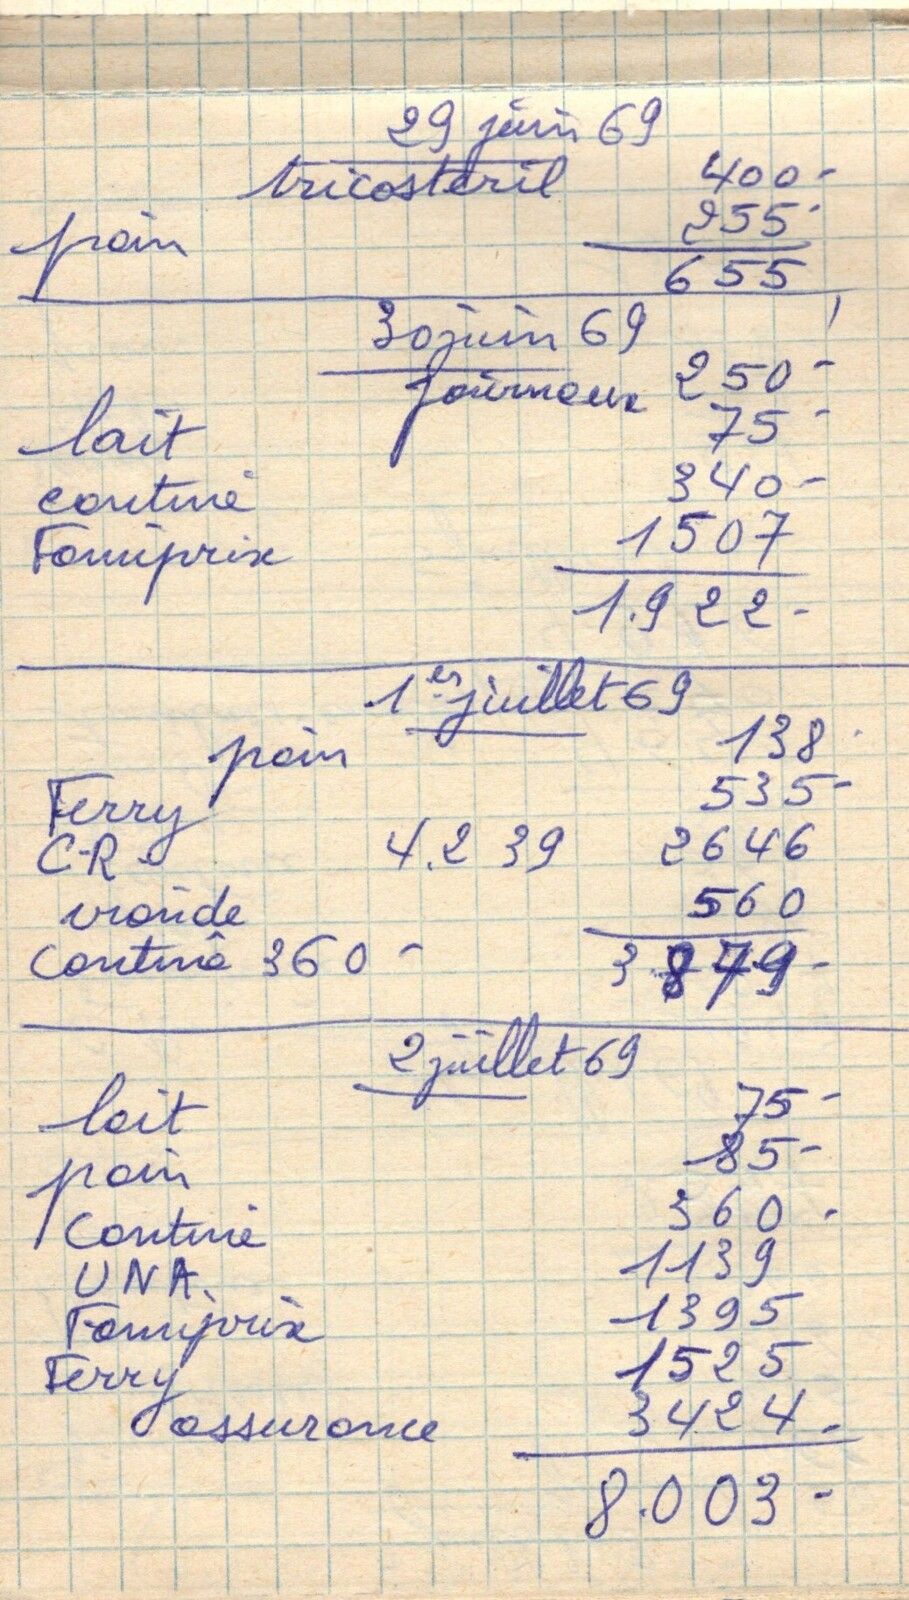 29 juin 69
tricosteril 400-
pain 255-
655
30 juin 69
journaux 250-
lait 75-
cantine 340-
Famiprix 1507
1.922-
1er juillet 69
pain 138-
Ferry 535-
C-R. 4.239 2646
viande 560
Cantine 360- 3879-
2 juillet 69
lait 75-
pain 85-
Cantine 360-
UNA. 1139
Famiprix 1395
Ferry 1525
assurance 3424-
8.003-